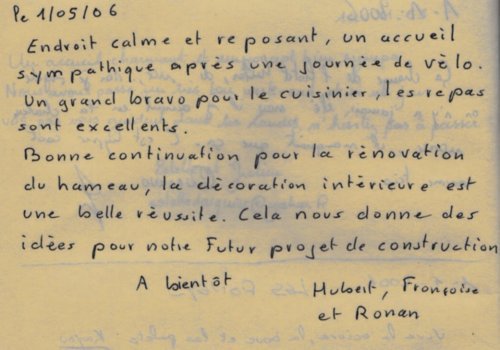 Le 1/05/06
Endroit calme et reposant, un accueil
sympathique après une journée de vélo.
Un grand bravo pour le cuisinier, les repas
sont excellents.
Bonne continuation pour la rénovation
du hameau, la décoration intérieure est
une belle réussite. Cela nous donne des
idées pour notre Futur projet de construction
A bientôt
Hubert, Françoise
et Ronan